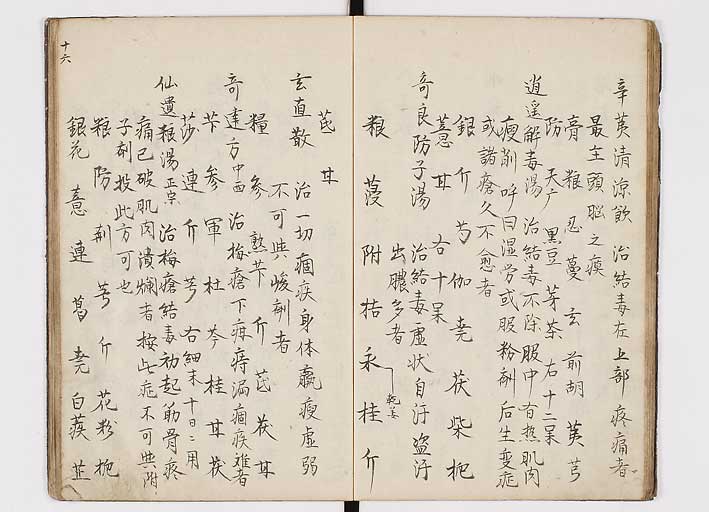 辛荑清涼飲 治結毒在上部疼痛者
最主頭脳之瘼
膏 粮 忍 蔓 玄 前胡 荑 芎
防 天广 黒豆 芽茶 右十二味
逍遥解毒湯 治結毒不除服中有熱肌肉
瘦削呼曰湿労或服粉剤后生変症
或諸瘡久不愈者
銀 介 芍 伽 尭 茯 柴 杷
薏 甘 右十味
奇良防子湯 治結毒虚状自汗盗汗
出膿多者
粮 蔆 附 桔 永 桂 介
乾姜
芪 甘
玄直散 治一切痼疾身体羸瘦虚弱
不可與峻剤者
糧 参 熟 芐 介 芪 茯 甘
奇建方中西 治梅瘡下疳痔漏痼疾難者
芐 参 軍 杜 芩 桂 甘 茯
莎 連 介 芎 右細末十日二用
仙遺粮湯正宗 治梅瘡結毒初起筋骨疼
痛已破肌肉潰爛者 按此症不可與附
子剤投此方可也
粮 防 荊 芎 介 花粉 杷
銀花 薏 連 葛 尭 白蒺 並
十六